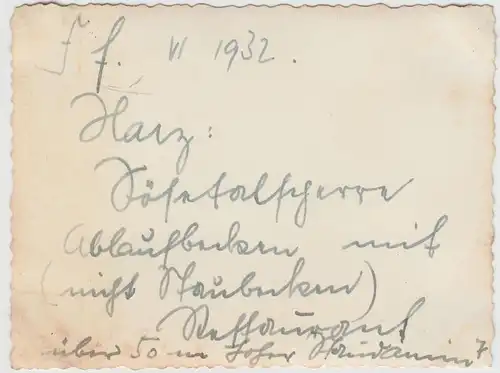 VI 1932.
Harz:
Sösetalsperre
Ablaufbecken mit
(nicht Staubecken)
Restaurant
über 50 m hoher Staudamm